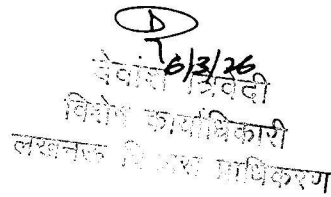 D
6/3/26
देवांश त्रिवेदी
विशेष कार्याधिकारी
लखनऊ विकास प्राधिकरण